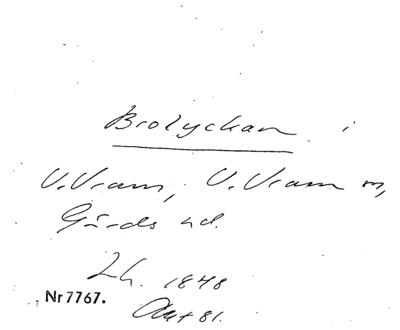 Brolyckan i
V. Vram, V. Vram sn,
Gärds hd.
Lh. 1848
Nr 7767.
Akt 81.